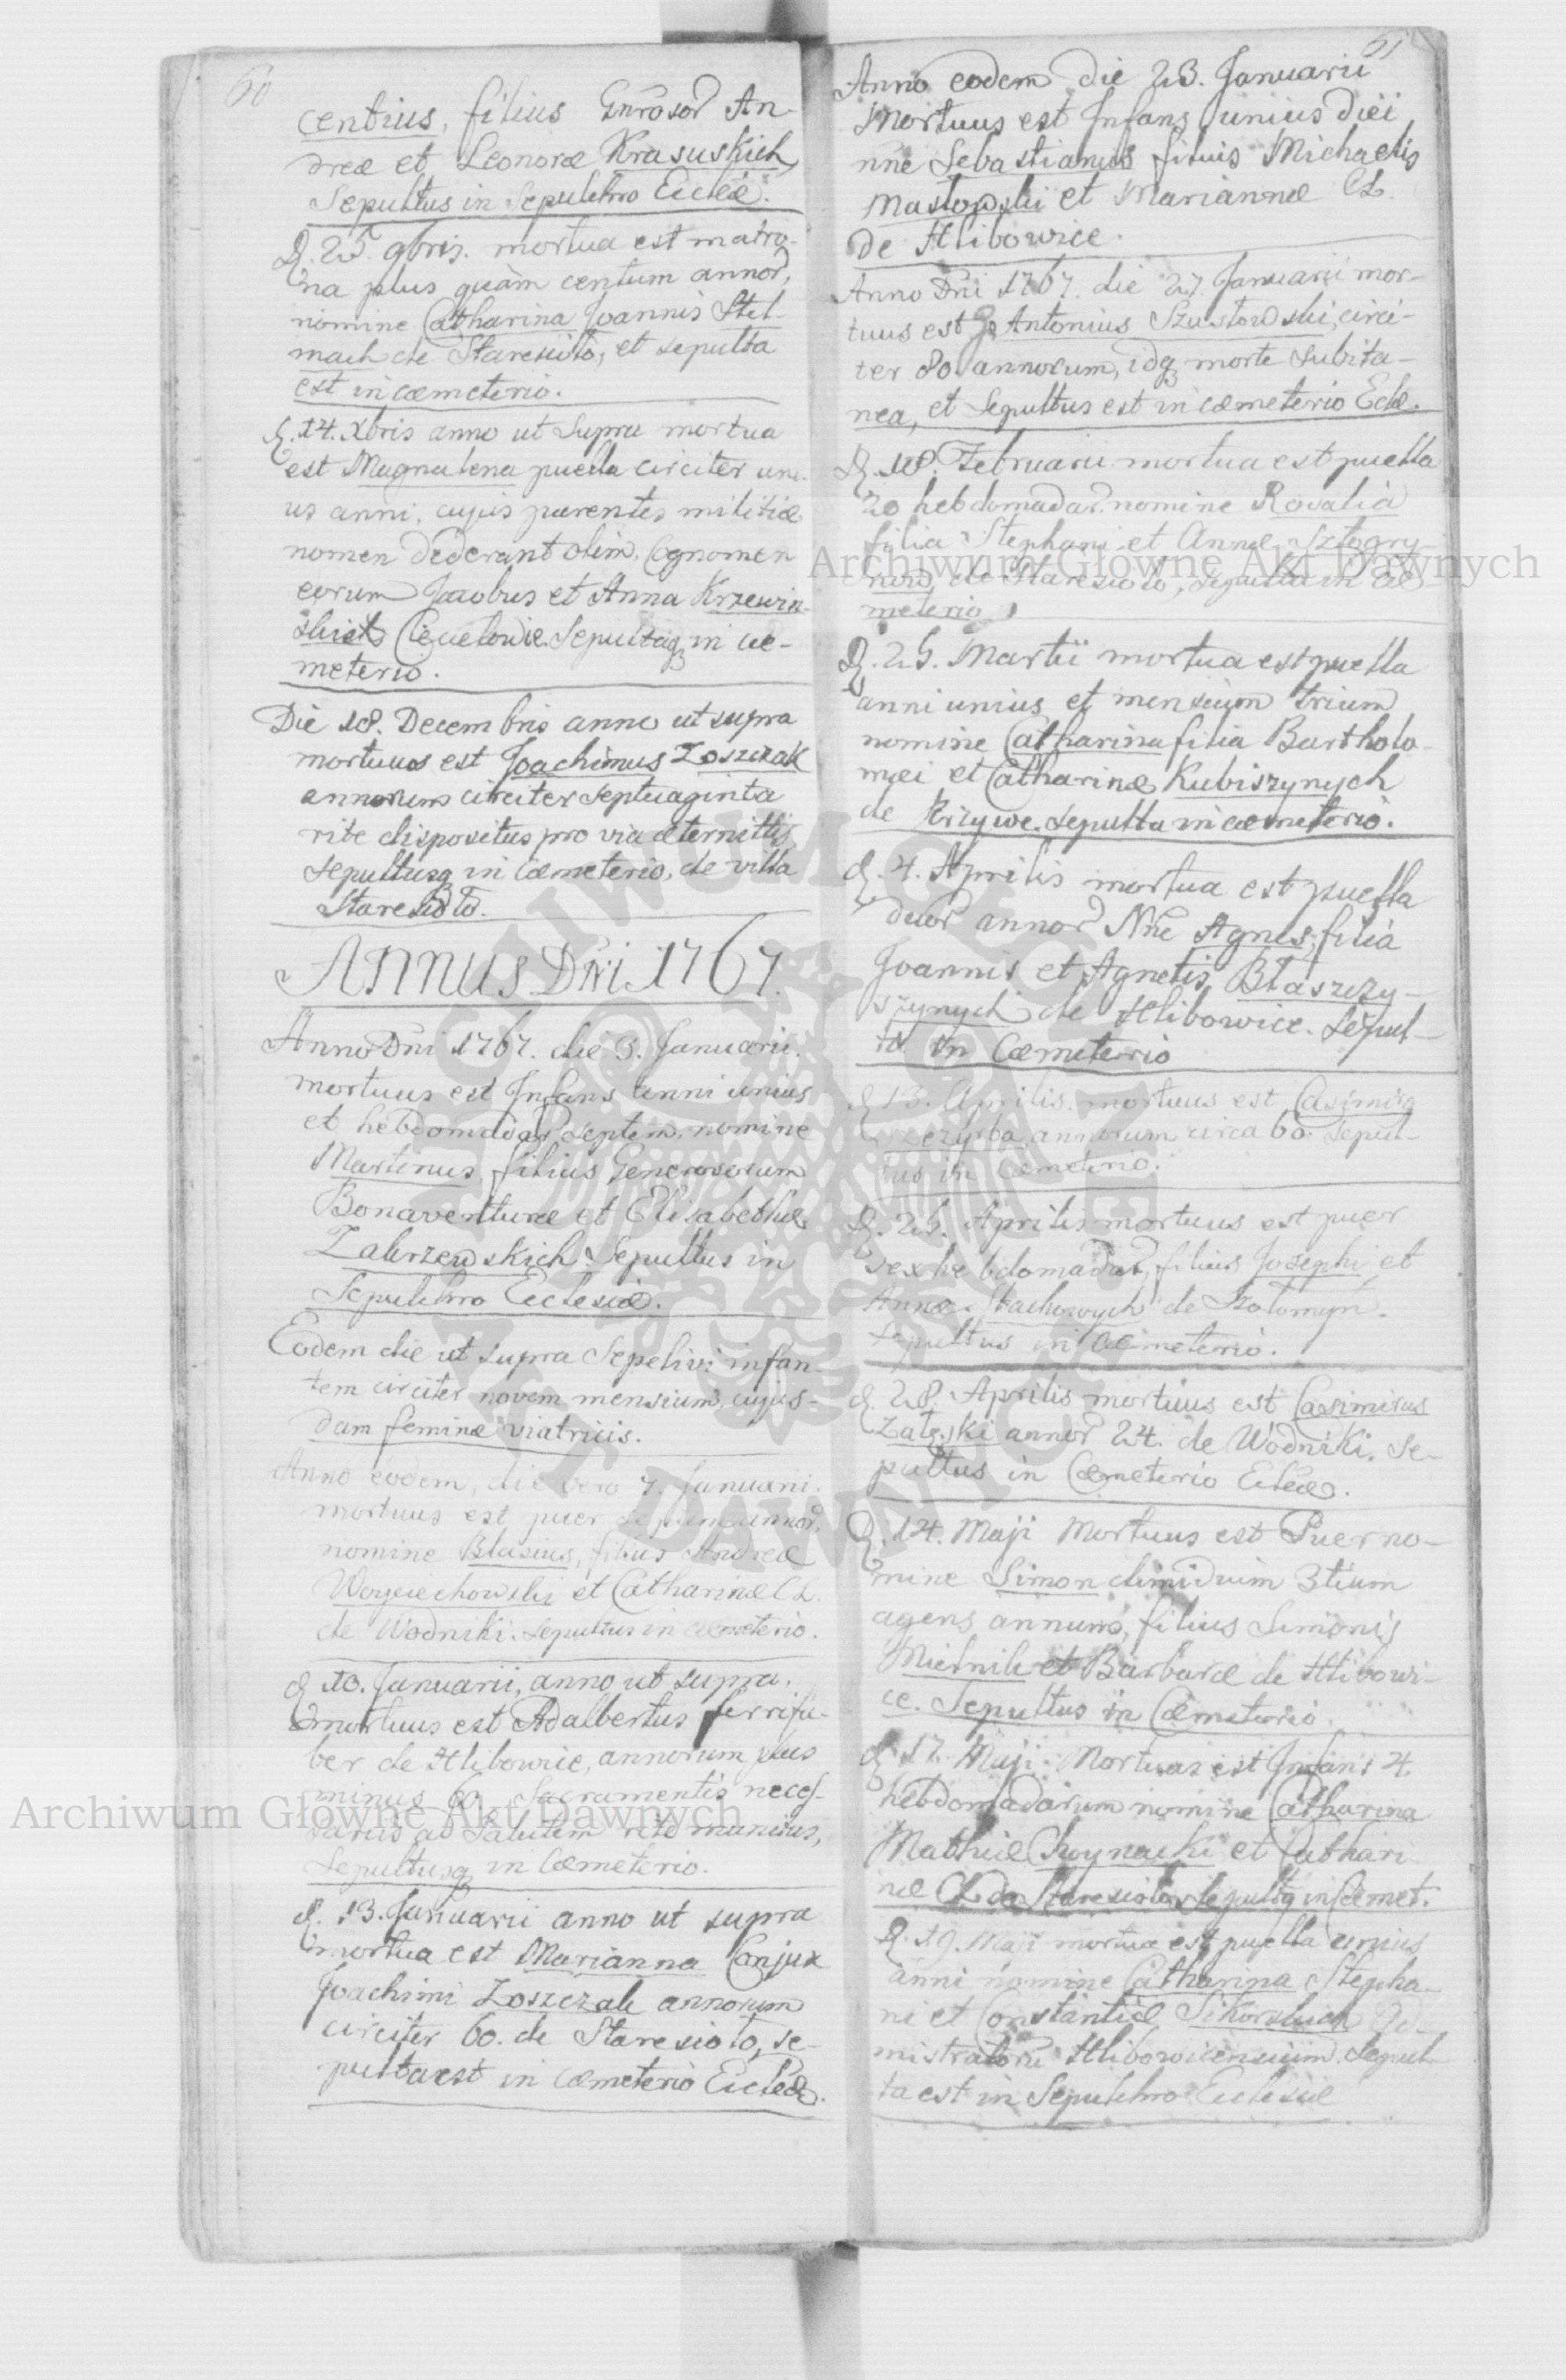 60
centius, filius Gnrosor An-
dreæ et Leonoræ Krasuskich
Sepultus in Sepulchro Eccleæ.
D. 25. 9bris. mortua est matro-
na plus quàm centum annor,
nomine Catharina Joannis Stel-
mach de Staresioło, et sepulta
est in cæmeterio.
D. 14. Xbris anno ut Supra mortua
est Magnalena puella circiter uni-
us anni, cujus parentes militiæ
nomen dederant olim. Cognomen
eorum Jacobus et Anna Krzewin-
skich Sepultaq in cæ-
meterio.
Die 18. Decembris anno ut supra
mortuus est Joachimus Zoszczak
annorum circiter Septuaginta
rite dispositus pro via æternitatis
Sepultusq in Cæmeterio, de villa
Staresioło.
Annus Dni 1767.
Anno Dni 1767. die 3. Januarii.
mortuus est Infans anni unius
et hebdomadar Septem, nomine
Martinus, filius Generosorum
Bonaventuræ et Elisabethæ
Zakrzewskich Sepultus in
Sepulchro Ecclesiæ.
Eodem die ut supra Sepelivi infan-
tem circiter novem mensium, cujus-
dam feminæ viatricis.
Anno eodem, die vero 7. Januarii.
mortuus est puer septem annor,
nomine Blasius, filius Andreæ
Woyciechowski et Catharinæ CL.
de Wodniki. Sepultus in cæmeterio.
d. 10. Januarii, anno ut supra,
mortuus est Adalbertus ferrifa-
ber de Hlibowice, annorum plus
minus 60. Sacramentis neces-
sariis ad Salutem rite munitus,
Sepultusq in Cæmeterio.
d. 13. Januarii anno ut supra
mortua est Marianna Conjux
Joachimi Zoszczak annorum
circiter 60. de Staresioło, se-
pulta est in cæmeterio Eccleæ.
61
Anno eodem die 23. Januarii
Mortuus est Infans unius diei
nne Sebastianus filius Michaelis
Masłowski et Mariannæ CL.
de Hlibowice.
Anno Dni 1767. die 27. Januarii mor-
tuus est G. Antonius Szustowski, circi-
ter 80. annorum, idq morte Subita-
nea, et Sepultus est in cæmeterio Eclæ.
D. 18. Februarii mortua est puella
20 hebdomadar. nomine Rosalia
filia Stephani et Annæ Sztogry-
now, de Staresioło, Sepulta in cæ
meterio
D. 25. Martii mortua est puella
anni unius et mensium trium
nomine Catharina filia Bartholo-
mæi et Catharinæ Kubiszynych
de Krzywe. Sepulta in cæmeterio.
d. 4. Aprilis mortua est puella
duor annor Nne Agnes, filia
Joannis et Agnetis Błaszczy-
szynych de Hlibowice. Sepul-
ta in Cæmeterio
d. 13. Aprilis. mortuus est Casimirg
annorum circa 60. Sepul-
tus in Cæmeterio.
D. 25. Aprilis mortuus est puer
sex hebdomadar, filius Josephi et
Annæ Stachowych de Szołomyn.
Sepultus in Cæmeterio.
d. 28. Aprilis mortuus est Casimirus
Załęski annor 24. de Wodniki. Se-
pultus in Cæmeterio Ecleæ.
D. 14. Maji Mortuus est Puer no-
mine Simon dimidium 3tium
agens annum, filius Simonis
Mielnik et Barbaræ de Hlibowi-
ce. Sepultus in Cæmeterio.
d. 17. Maji. Mortuas est Infans 4.
hebdomadarum nomine Catharina
Mathiæ Choynacki et Cathari
næ CL de Staresioło Sepultq in Cæmet.
D. 19. Maji mortua est puella unius
anni nomine Catharina Stepha-
ni et Constantiæ Sikorskich Ad
mistratoru Hlibowicensium. Sepul-
ta est in Sepulchro Ecclesiæ
Archiwum Główne Akt Dawnych
Archiwum Główne Akt Dawnych
ARCHIWUM GŁÓWNE
AKT DAWNYCH